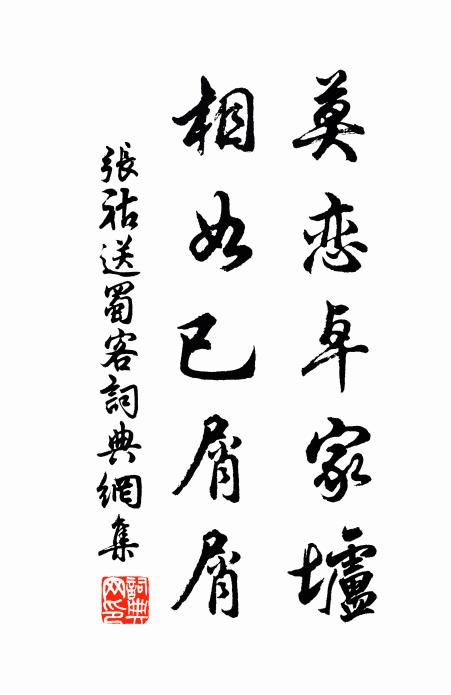 莫恋卓家壚
相如已屑屑
張祜送蜀客詞典網集
詞典網印